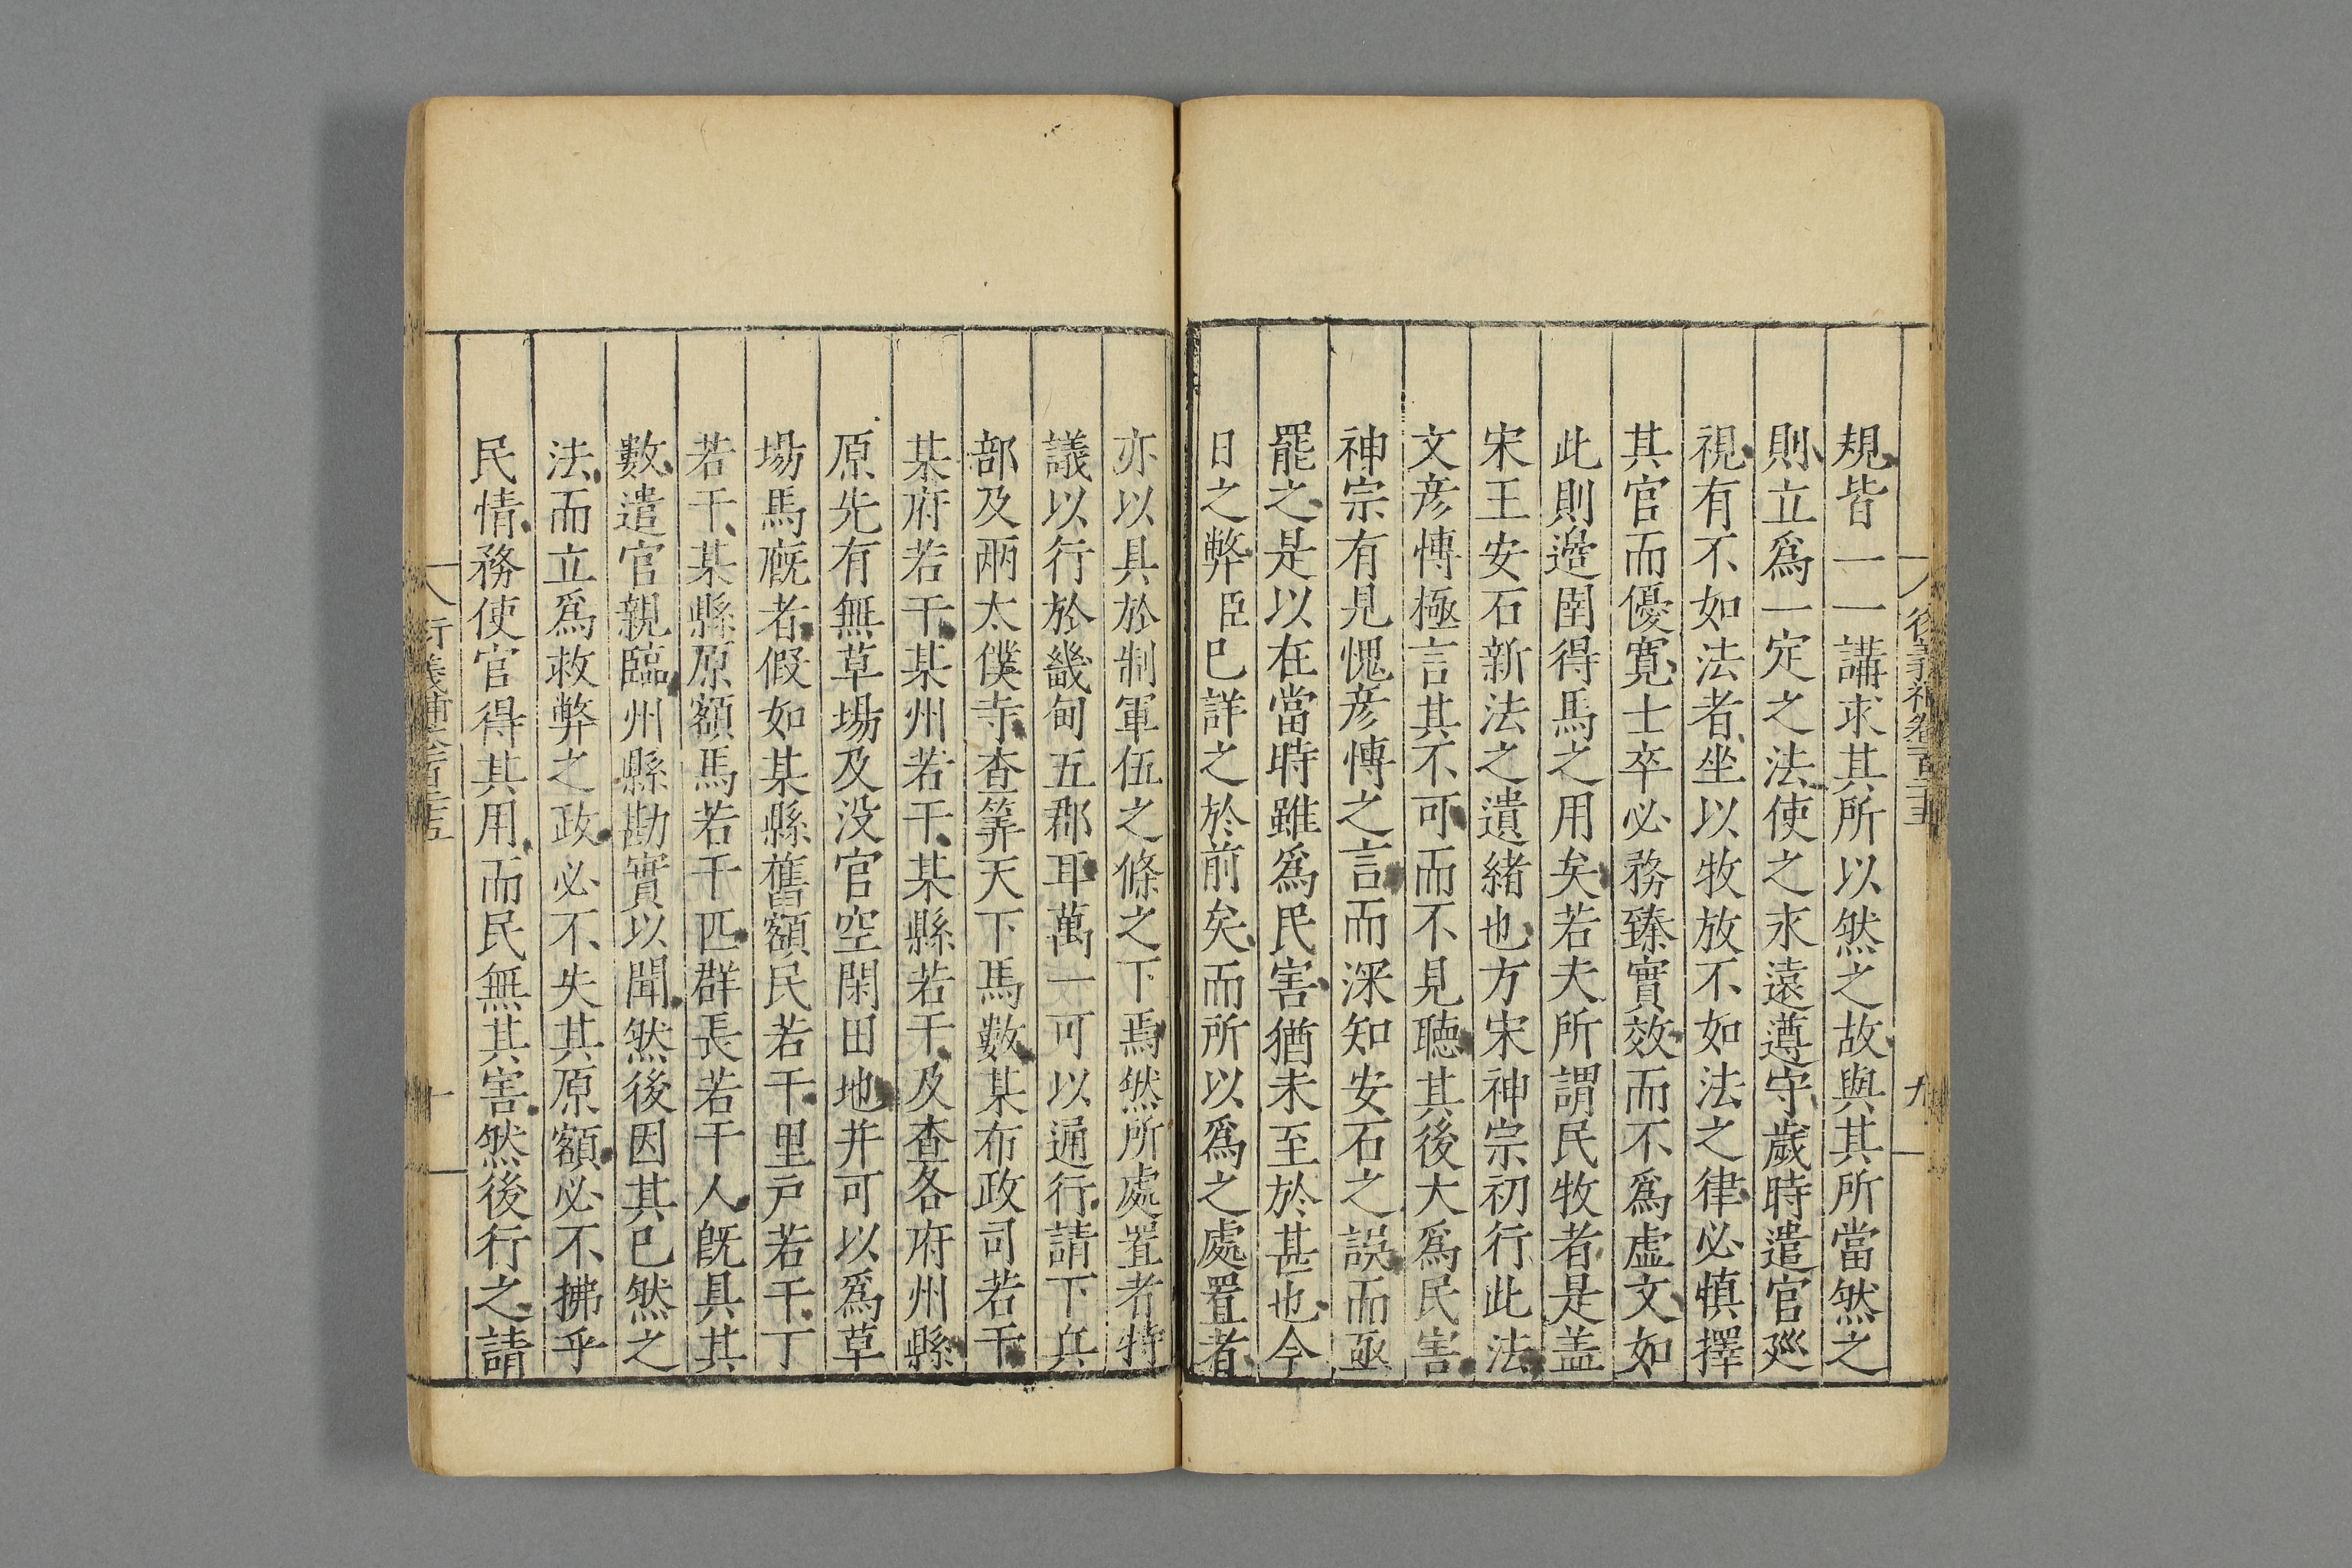 規皆一一講求其所以然之故與其所當然之
則立爲一定之法使之永遠遵守歲時遣官廵
視有不如法者坐以牧放不如法之律必慎擇
其官而優寛士卒必務臻實效而不爲虚文如
此則邉圉得馬之用矣若夫所謂民牧者是盖
宋王安石新法之遺緒也方宋神宗初行此法
文彦愽極言其不可而不見聴其後大爲民害
神宗有見愧彦愽之言而深知安石之誤而亟
罷之是以在當時雖爲民害猶未至於甚也今
日之弊臣已詳之於前矣而所以爲之處置者
亦以具於制軍伍之條之下焉然所處置者特
議以行於畿甸五郡耳萬一可以通行請下兵
部及兩太僕寺查筭天下馬數某布政司若干
某府若干某州若干某縣若干及查各府州縣
原先有無草塲及没官空閑田地并可以爲草
塲馬廐者假如某縣舊額民若干里戸若干丁
若干某縣原額馬若干匹群長若干人既具其
數遣官親臨州縣勘實以聞然後因其已然之
法而立爲救弊之政必不失其原額必不拂乎
民情務使官得其用而民無其害然後行之請
十